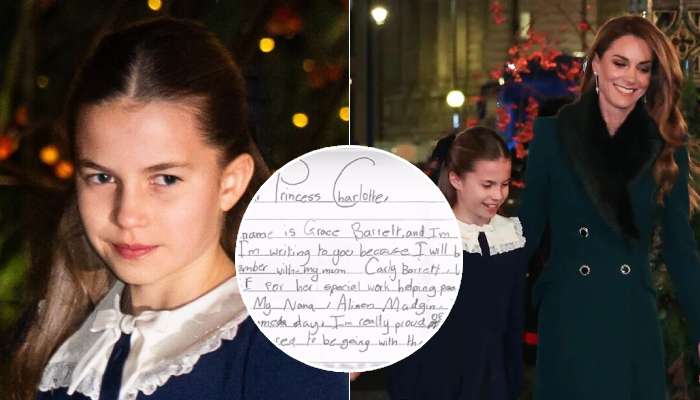 Princess Charlotte,
name is Grace Barrett, and I'm
I'm writing to you because I will b
mber with my mum Carly Barrett,
E For her special work helping
My Nana, Alison Madgin
day. I'm really proud of
red to be going with the